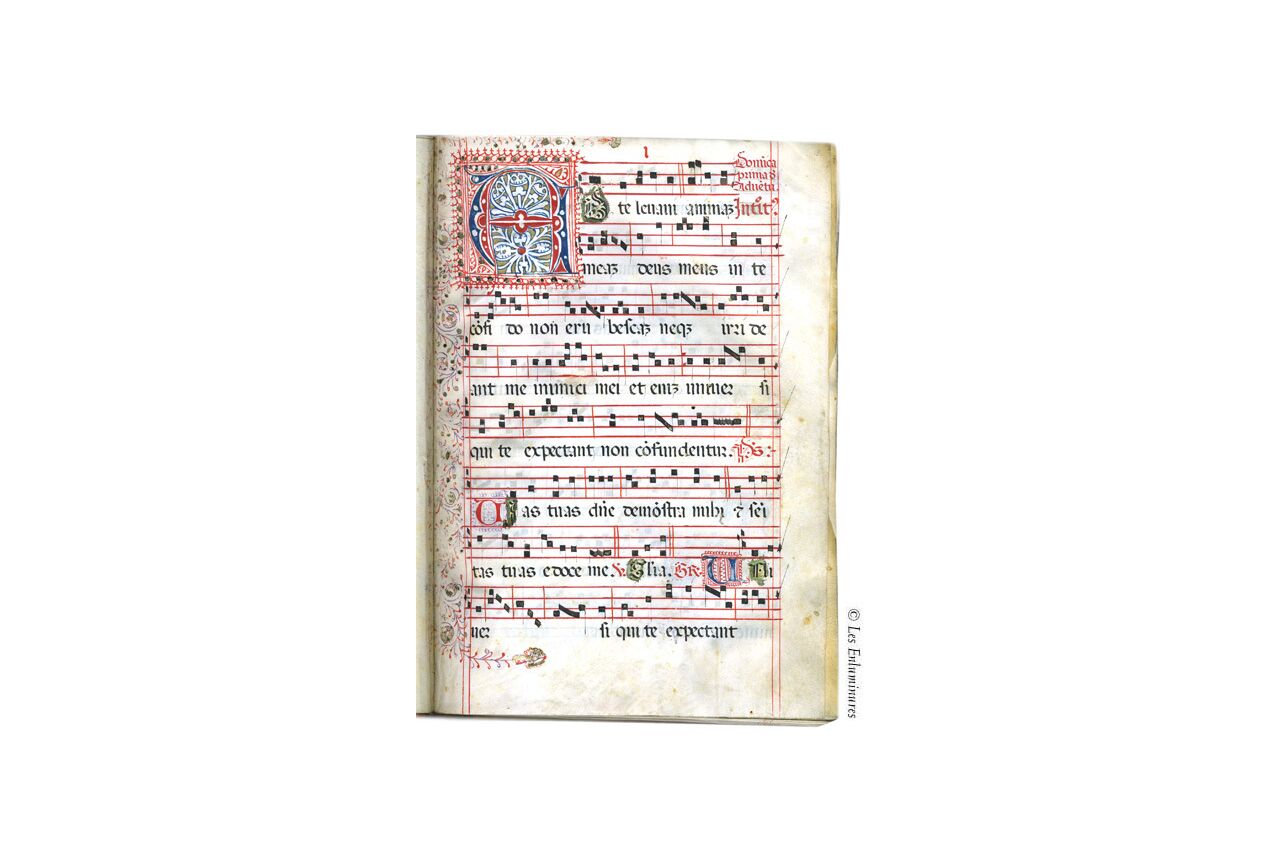 I
Domi͂ca
prima d
advētu.
AD te levavi animaʒ Introit͂ʒ
meaʒ deus meus in te
cōfi do non eru bescaʒ neqʒ irri de
ant me inimici mei et eniʒ univer si
qui te expectant non cōfundentur. Ps:
Vias tuas dn̄e demōstra mihi ⁊ semi
tas tuas edoce me. V. Glia. GR. Uni
ver si qui te expectant
© Les Enluminures